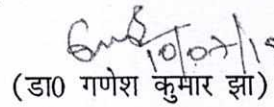 10/07/19
(डा0 गणेश कुमार झा)